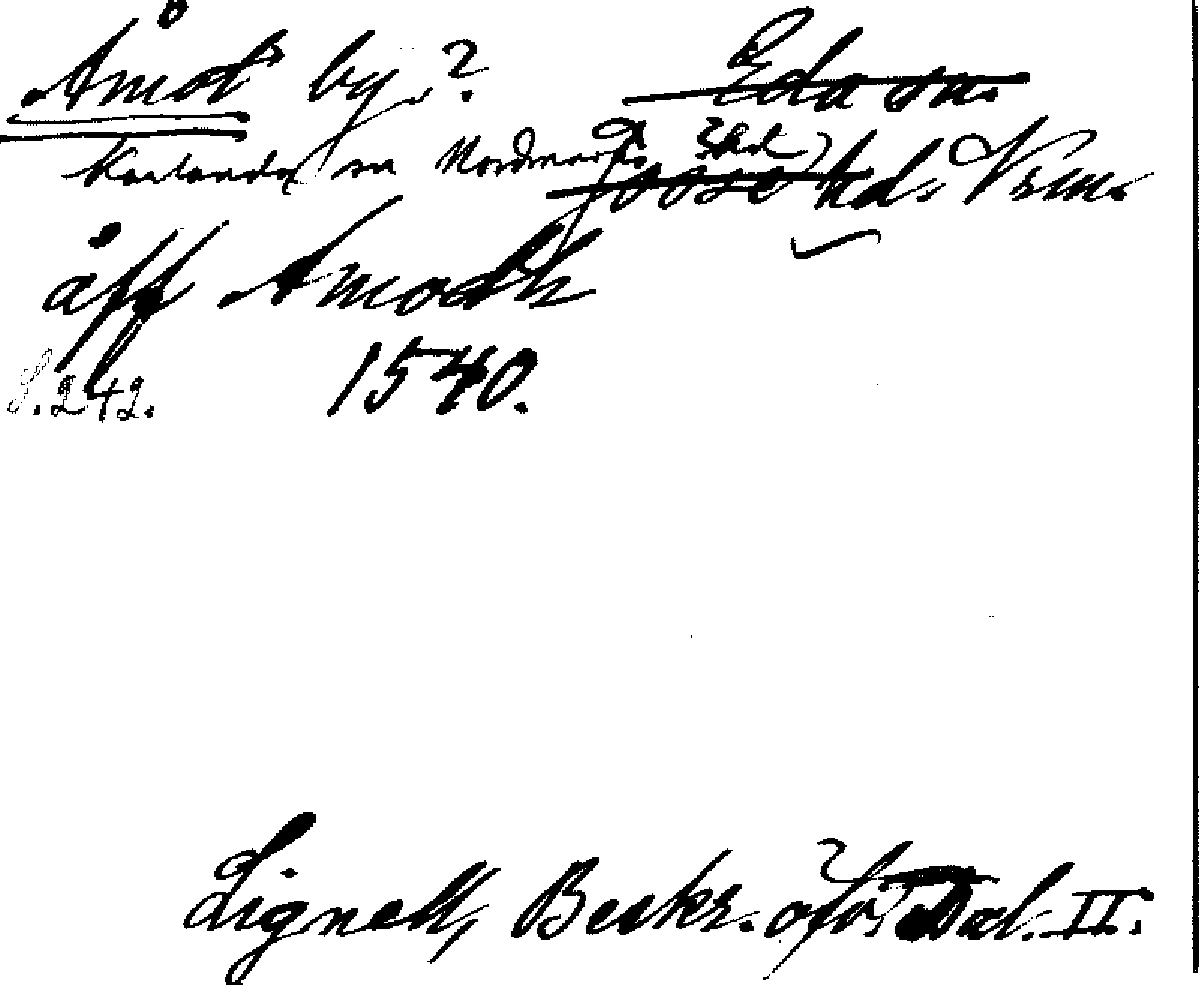 Åmot by? Eda sn.
Karlanda sn Nordmarks hd Jösse hd. Vrm.
åff Amodh
S. 242. 1540.
Lignell, Beskr. öfv. Dal. II.